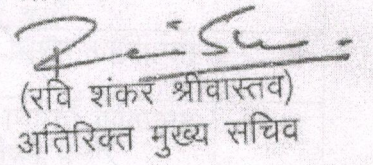 (रवि शंकर श्रीवास्तव)
अतिरिक्त मुख्य सचिव